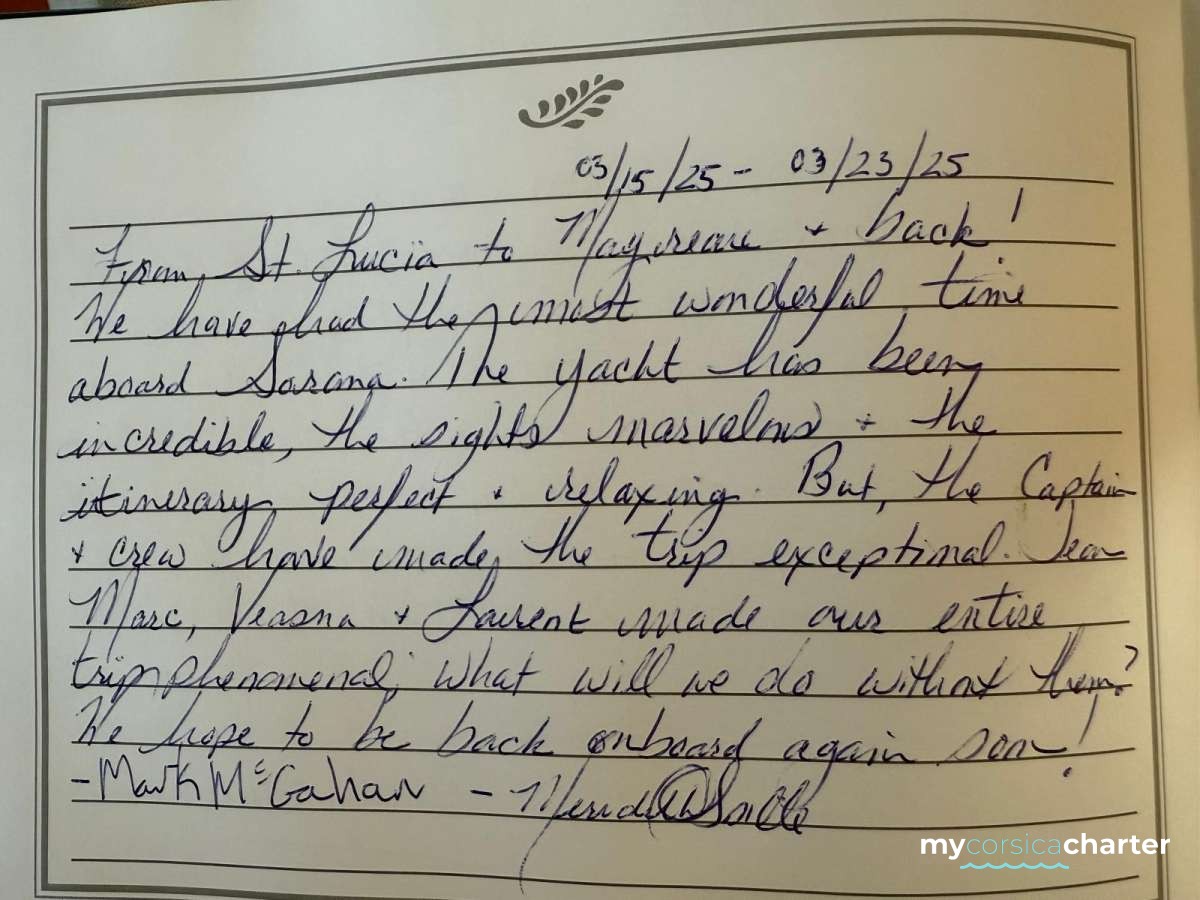 03/15/25 - 03/23/25
From St. Lucia to Mayreau + back!
We have had the most wonderful time
aboard Sarana. The yacht has been
incredible, the sights marvelous + the
itinerary perfect + relaxing. But, the Captain
+ crew have made the trip exceptional. Jean
Marc, Veasna + Laurent made our entire
trip phenomenal; what will we do without them?
We hope to be back onboard again soon!
- Mark McGahan -
mycorsicacharter